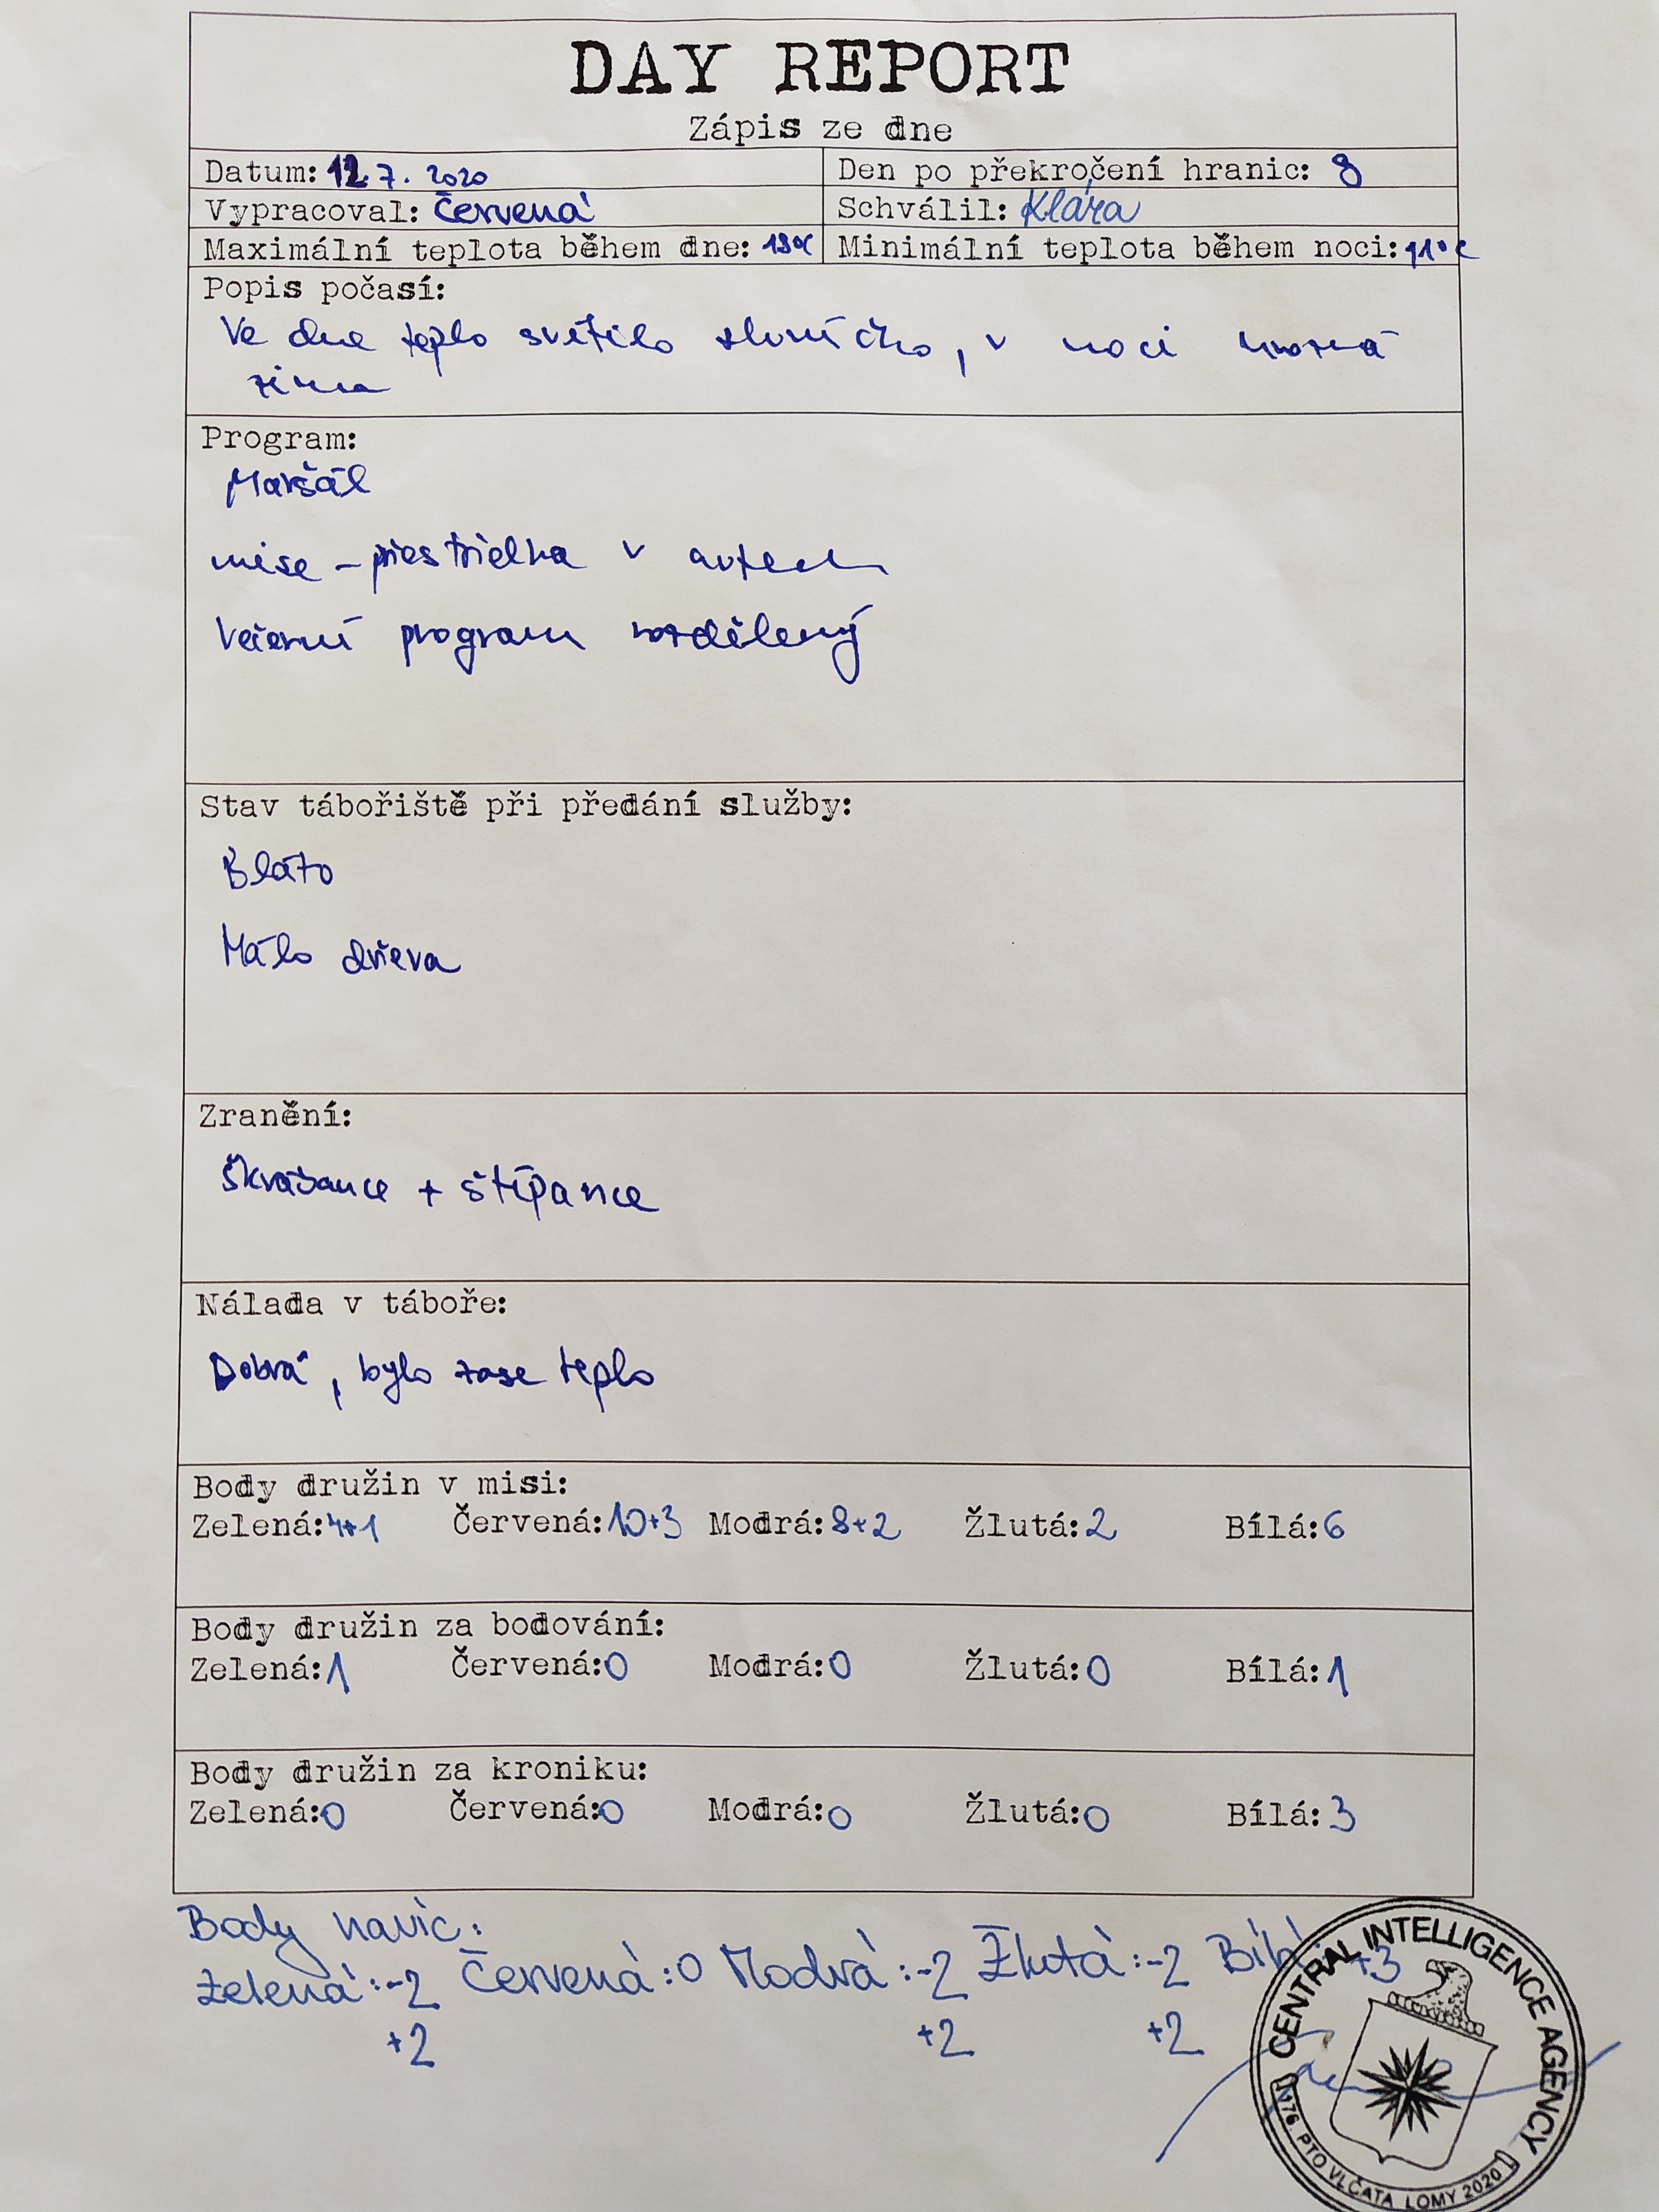 DAY REPORT
Zápis ze dne
Datum: 12.7. 2020
Den po překročení hranic: 8
Vypracoval: Červená
Schválil: Klára
Maximální teplota během dne:
Minimální teplota během noci: 11°C
Popis počasí:
Ve dne teplo svítilo sluníčko, v noci hrozná
zima
Program:
Maršál
mise - v autech
Večerní program rozdělený
Stav tábořiště při předání služby:
Bláto
Málo dřeva
Zranění:
Škrábance + štípance
Nálada v táboře:
Dobrá, bylo zase teplo
Body družin v misi:
Zelená: 4+1 Červená: 10+3 Modrá: 8+2 Žlutá: 2 Bílá: 6
Body družin za bodování:
Zelená: 1 Červená: 0 Modrá: 0 Žlutá: 0 Bílá: 1
Body družin za kroniku:
Zelená: 0 Červená: 0 Modrá: 0 Žlutá: 0 Bílá: 3
Body navíc:
Zelená: -2 Červená: 0 Modrá: -2 Žlutá: -2 Bílá: +3
+2 +2 +2
CENTRAL INTELLIGENCE AGENCY
176. PTO VLČATA LOMY 2020